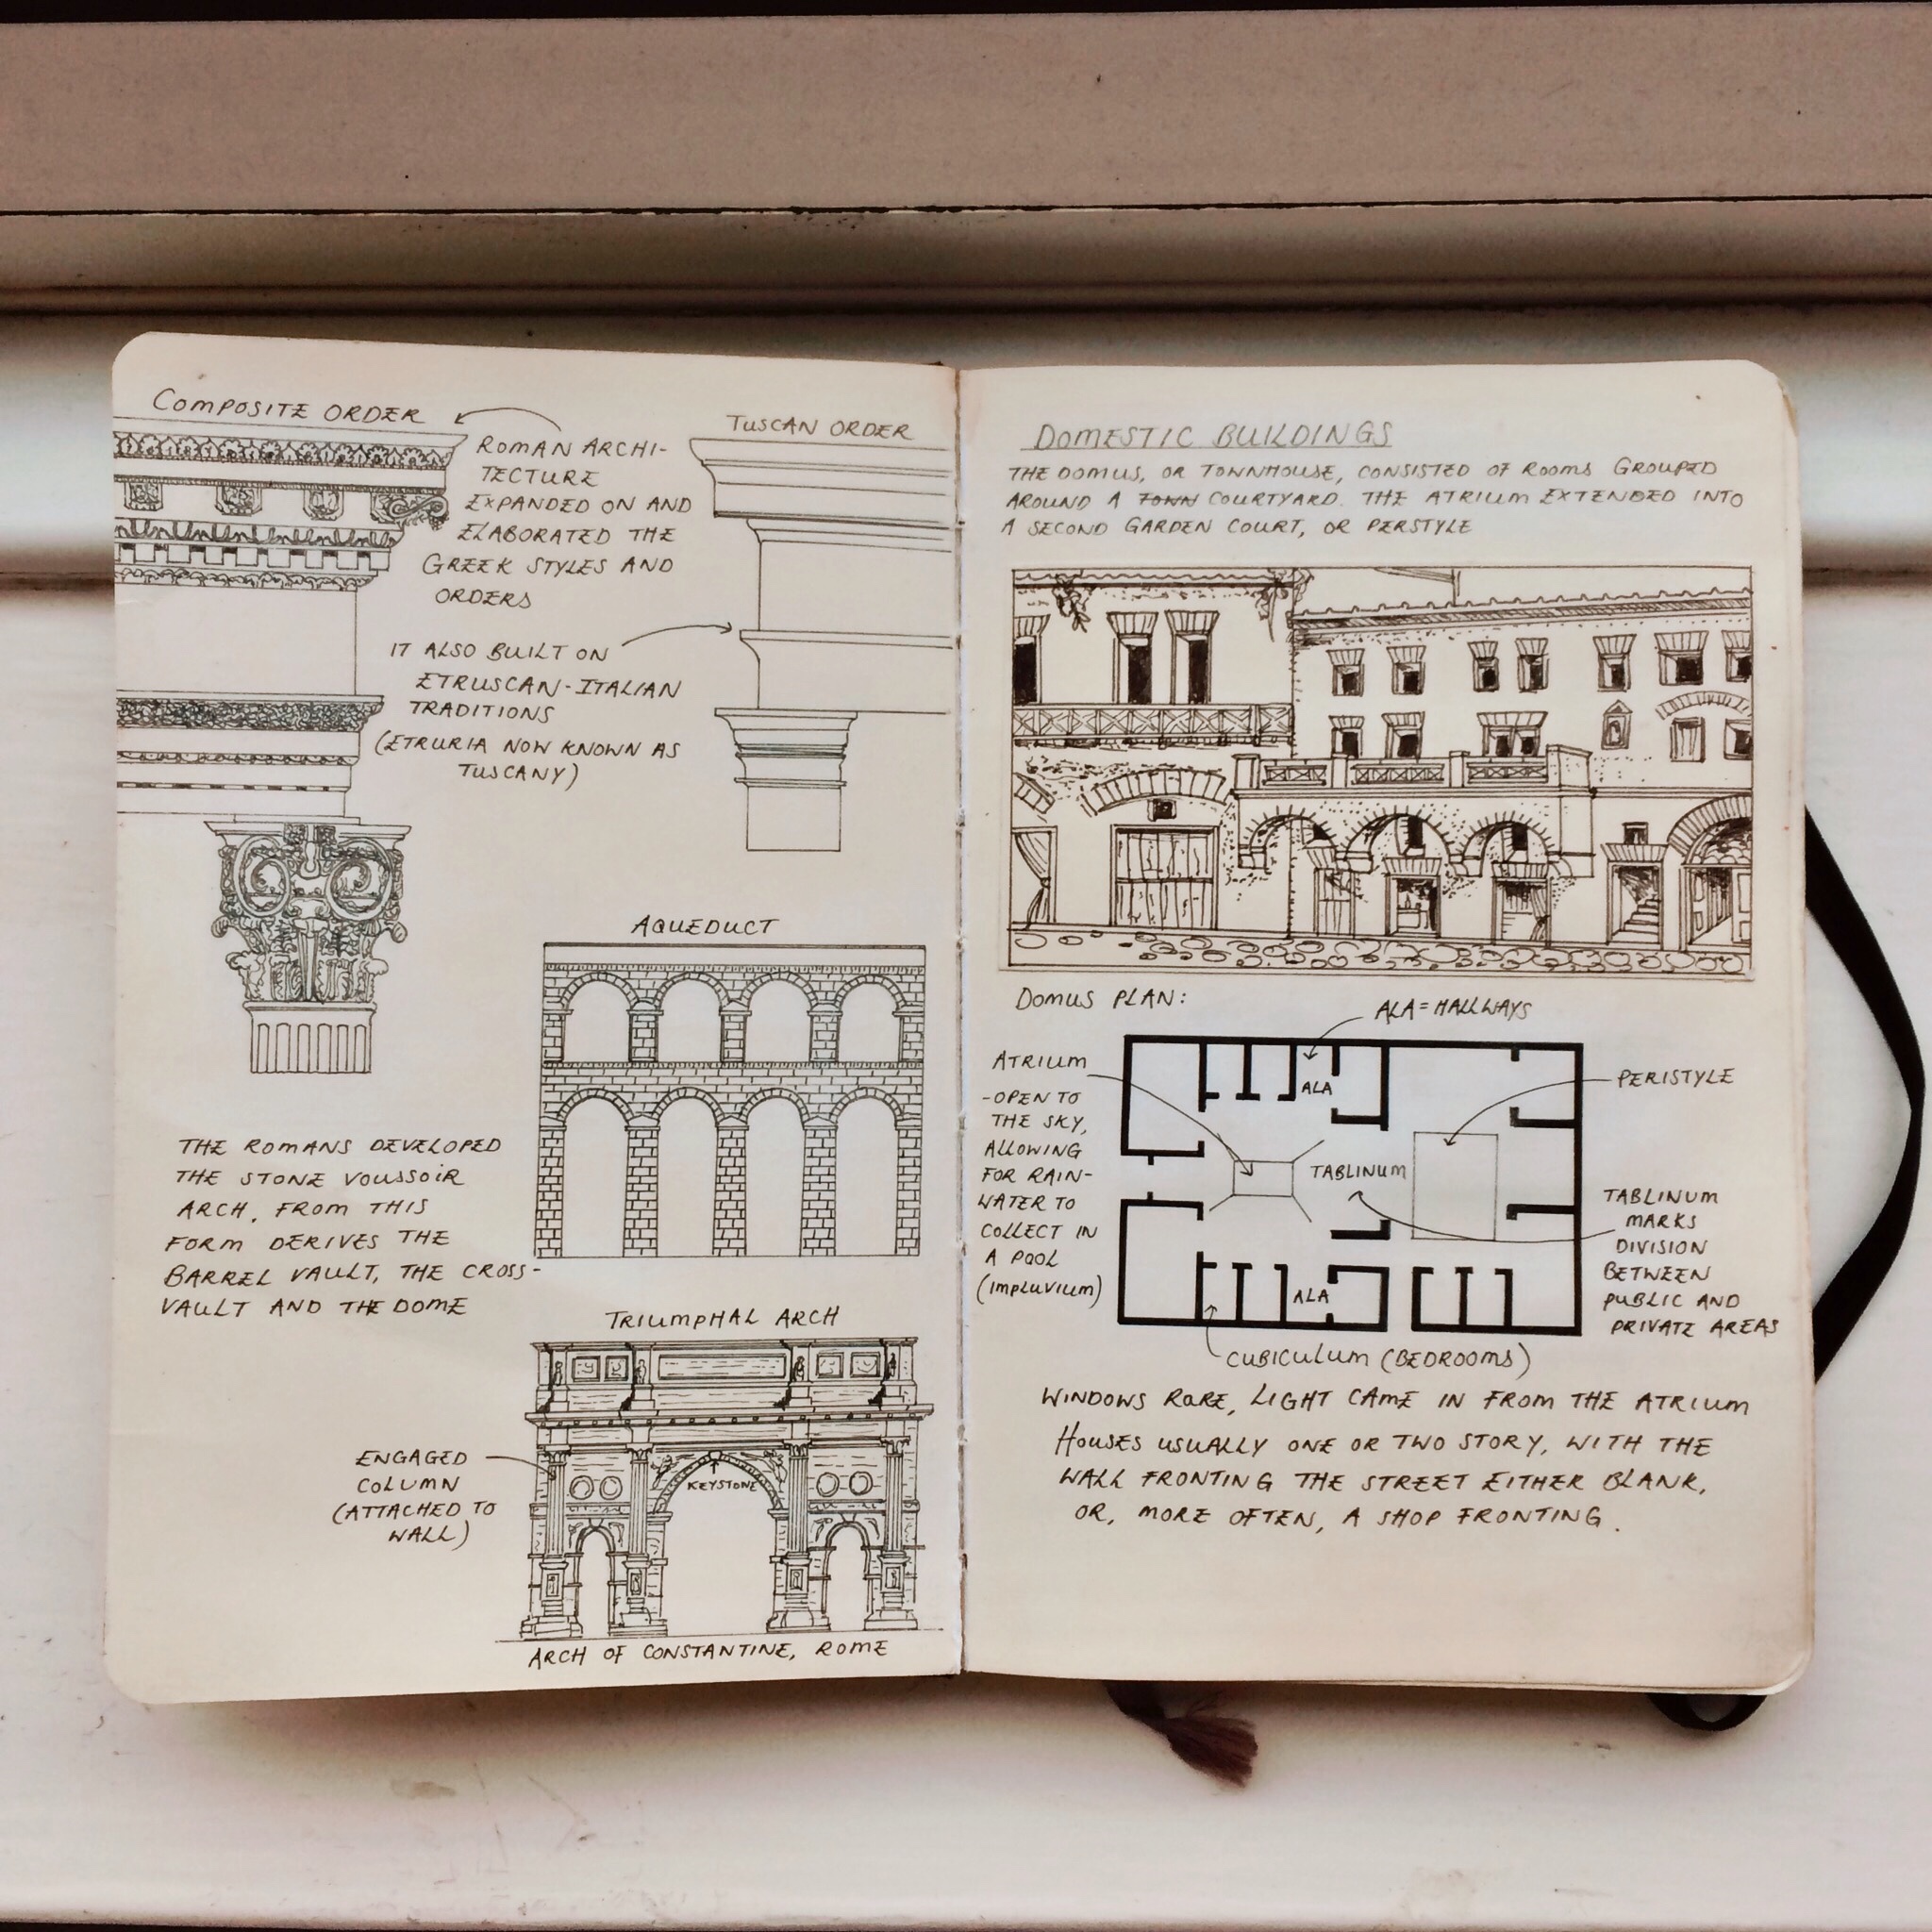 COMPOSITE ORDER
ROMAN ARCHI-
TECTURE
EXPANDED ON AND
ELABORATED THE
GREEK STYLES AND
ORDERS
TUSCAN ORDER
IT ALSO BUILT ON
ETRUSCAN-ITALIAN
TRADITIONS
(ETRURIA NOW KNOWN AS
TUSCANY)
AQUEDUCT
THE ROMANS DEVELOPED
THE STONE VOUSSOIR
ARCH. FROM THIS
FORM DERIVES THE
BARREL VAULT, THE CROSS-
VAULT AND THE DOME
TRIUMPHAL ARCH
ENGAGED
COLUMN
(ATTACHED TO
WALL)
KEYSTONE
ARCH OF CONSTANTINE, ROME
DOMESTIC BUILDINGS
THE DOMUS, OR TOWNHOUSE, CONSISTED OF ROOMS GROUPED
AROUND A TOWN COURTYARD. THE ATRIUM EXTENDED INTO
A SECOND GARDEN COURT, OR PERSTYLE
DOMUS PLAN:
ALA = HALLWAYS
ATRIUM
-OPEN TO
THE SKY,
ALLOWING
FOR RAIN-
WATER TO
COLLECT IN
A POOL
(IMPLUVIUM)
ALA
PERISTYLE
TABLINUM
TABLINUM
MARKS
DIVISION
BETWEEN
PUBLIC AND
PRIVATE AREAS
ALA
CUBICULUM (BEDROOMS)
WINDOWS RARE, LIGHT CAME IN FROM THE ATRIUM
HOUSES USUALLY ONE OR TWO STORY, WITH THE
WALL FRONTING THE STREET EITHER BLANK,
OR, MORE OFTEN, A SHOP FRONTING.